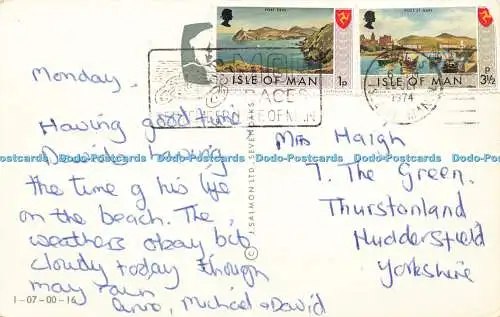 PORT ERIN
ISLE OF MAN
1P
PORT ST. MARY
ISLE OF MAN
P
3½
1974
RACES
ISLE OF MAN
Monday.
Having good time
David's having
the time of his life
on the beach. The
weathers okay bit
cloudy today though
may rain
Ann, Michael & David
Mrs Haigh
7. The Green.
Thurstonland
Huddersfield
Yorkshire
© J. SALMON LTD., SEVENOAKS
1-07-00-16
Dodo-Postcards Dodo-Postcards Dodo-Postcards Dodo-Postcards Dodo-Postcards Dodo-Postcards